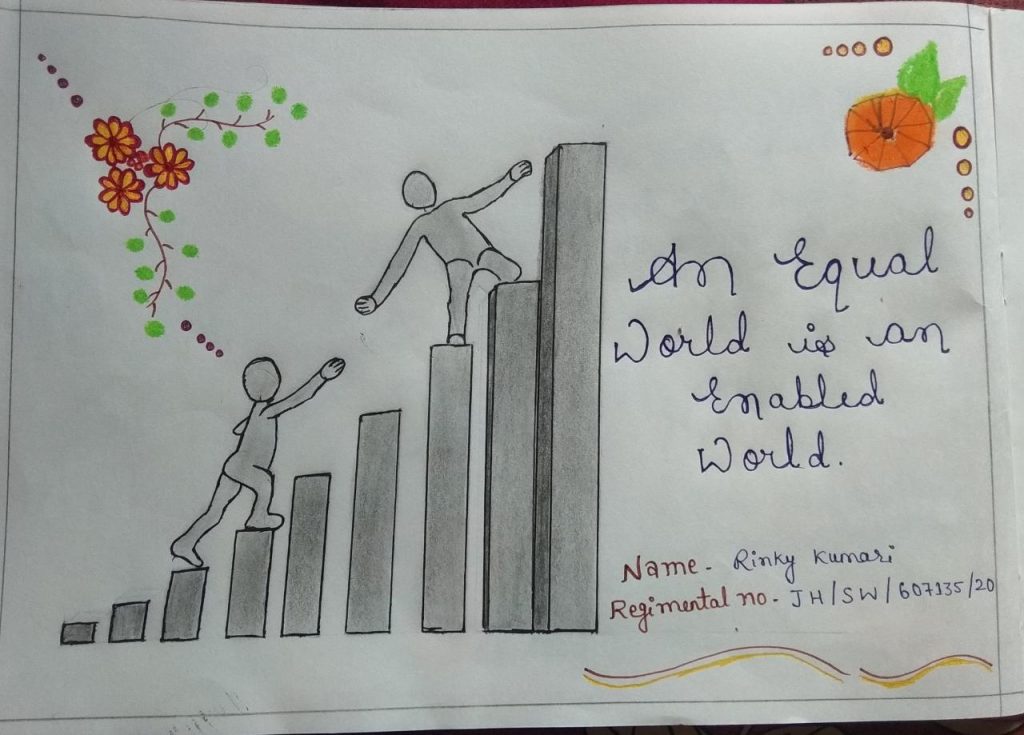 An Equal
World is an
Enabled
World.
Name - Rinky Kumari
Regimental no. - JH/SW/607135/20